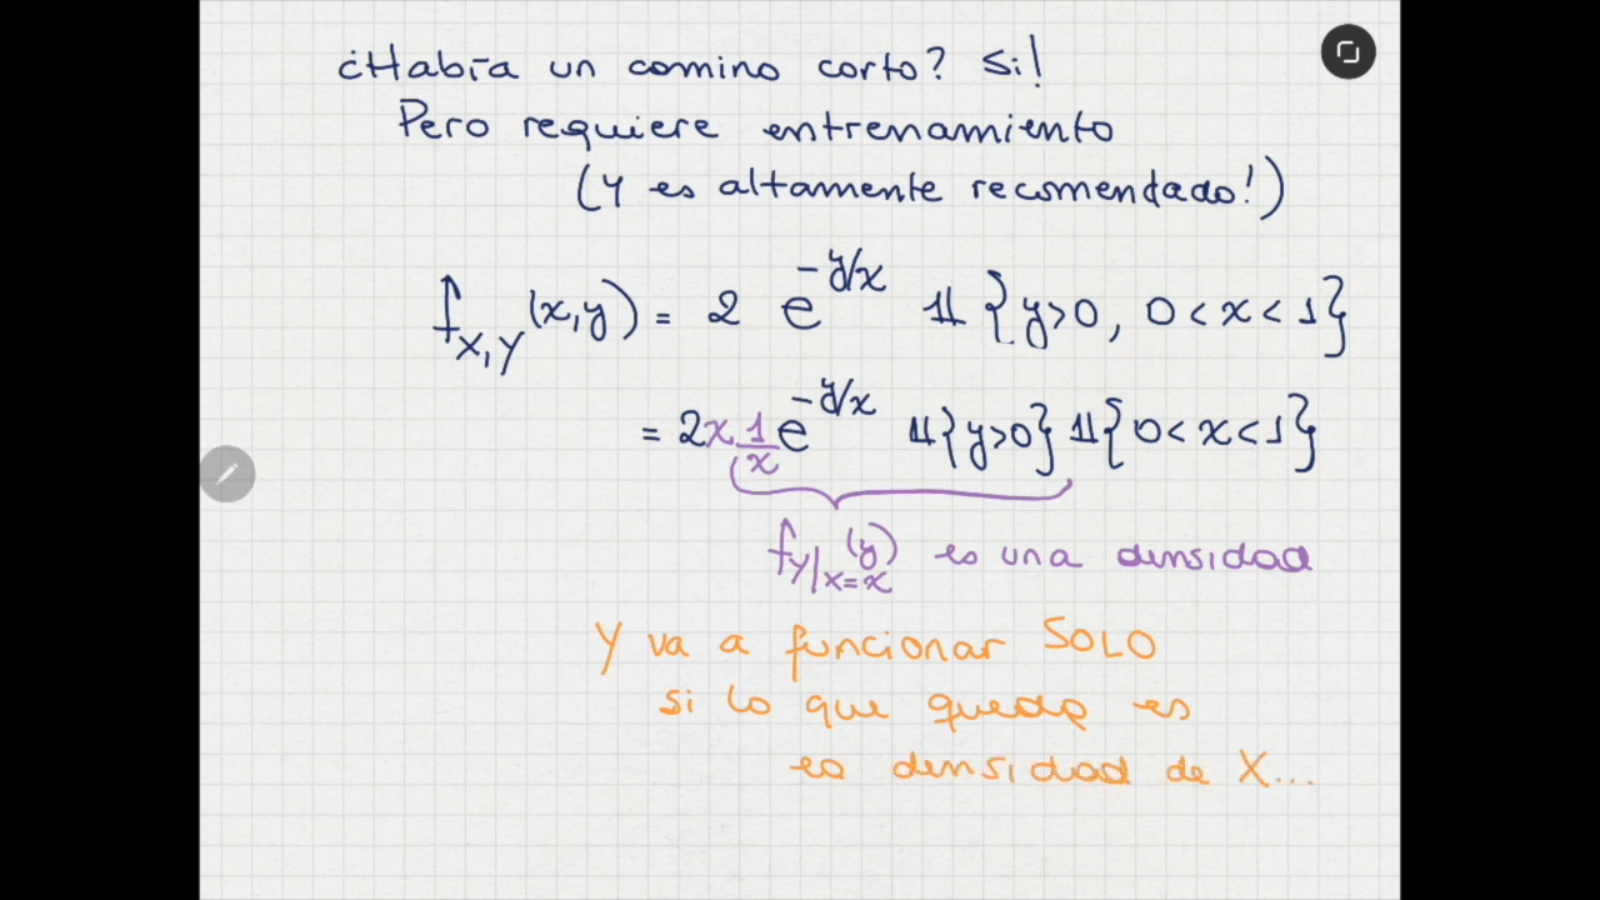 ¿Había un comino corto? Si!
Pero requiere entrenamiento
(Y es altamente recomendado!)
f_{X,Y}(x,y) = 2 e^{-y/x} 𝟙{y>0, 0<x<1}
= 2x \frac{1}{x} e^{-y/x} 𝟙{y>0} 𝟙{0<x<1}
f_{Y|X=x}(y) es una densidad
Y va a funcionar SOLO
si lo que queda es
es densidad de X...